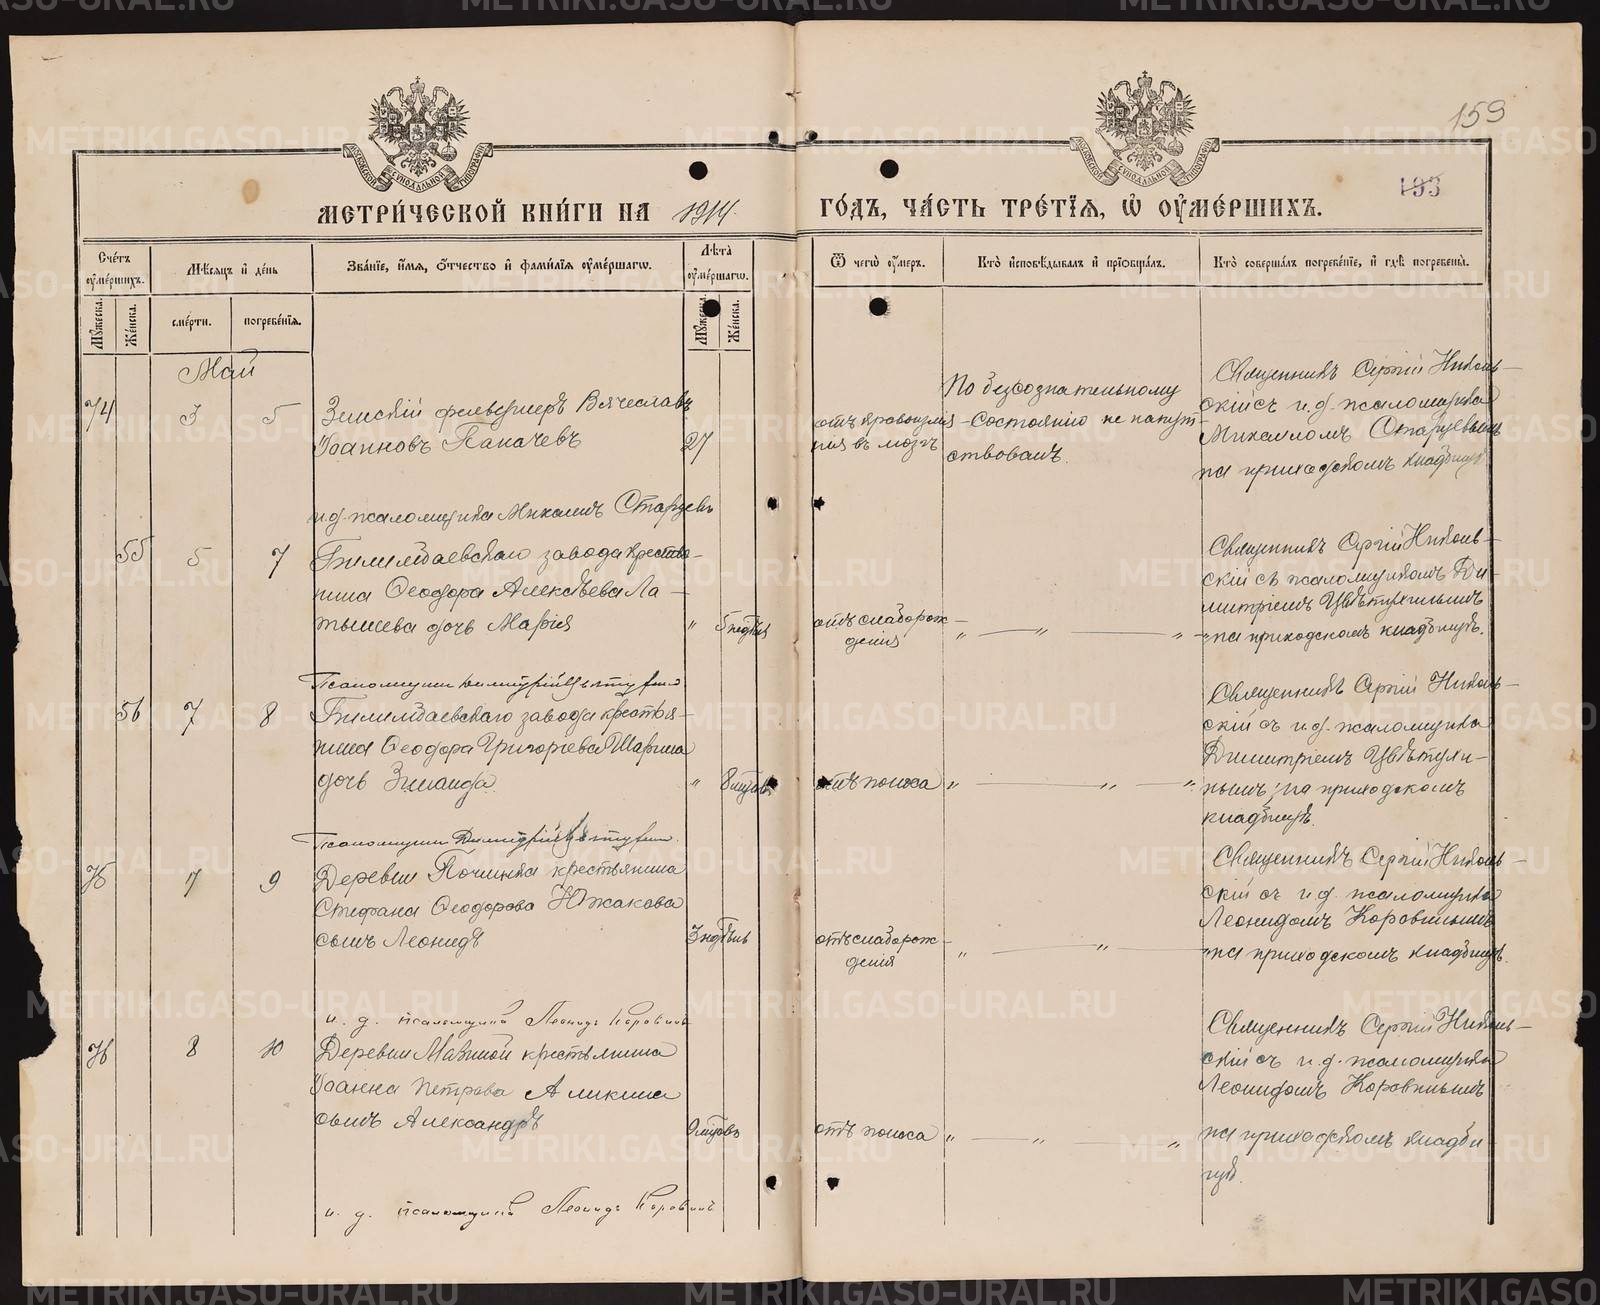 159
193
МОСКОВСКОЙ СѴНОДАЛЬНОЙ ТИПОГРАФІИ
МОСКОВСКОЙ СѴНОДАЛЬНОЙ ТИПОГРАФІИ
МЕТРИЧЕСКОЙ КНИГИ НА 1914. ГОДЪ, ЧАСТЬ ТРЕТІЯ, Ѡ ОУМЕРШИХЪ.
Счетъ оумершихъ.
Мѣсяцъ и день
Званіе, имя, отчество и фамилія оумершагѡ.
Лѣта оумершагѡ.
Ѿ чегѡ оумеръ.
Кто исповѣдывалъ и пріобщалъ.
Кто совершалъ погребеніе, и гдѣ погребены.
Мужеска.
Женска.
смерти.
погребенія.
Мужеска.
Женска.
Май
74 3 5
Земскій фельдшеръ Вячеславъ
Іоанновъ Пакачевъ 27
отъ кровоизлія
нія въ мозгъ
По безсознательному
состоянію не напут-
ствованъ.
Священникъ Сергій Николь-
скій съ и.д. псаломщика
Михаиломъ Старцевымъ
на приходскомъ кладбищѣ
и.д. псаломщика Михаилъ Старцевъ
55 5 7
Билимбаевскаго завода крестья-
нина Ѳеодора Алексѣева Ла-
тышева дочь Марія " 5 недѣль
отъ слаборож-
денія
" — " — "
Священникъ Сергій Николь-
скій съ псаломщикомъ Ди-
митріемъ Цвѣтухинымъ
на приходскомъ кладбищѣ.
Псаломщикъ Димитрій Цвѣтухинъ
56 7 8
Билимбаевскаго завода крестья-
нина Ѳеодора Григорьева Шарина
дочь Зинаида " 8 мѣсяцевъ
отъ поноса
" — " — "
Священникъ Сергій Николь-
скій съ и.д. псаломщика
Димитріемъ Цвѣтухи-
нымъ; на приходскомъ
кладбищѣ.
Псаломщикъ Димитрій Цвѣтухинъ
75 7 9
Деревни Починка крестьянина
Стефана Ѳеодорова Южакова
сынъ Леонидъ 3 недѣль
отъ слаборож-
денія
" — " —
Священникъ Сергій Николь-
скій съ и.д. псаломщика
Леонидомъ Коровинымъ
на приходскомъ кладбищѣ.
и. д. псаломщика Леонидъ Коровинъ
76 8 10
Деревни Макшой крестьянина
Іоанна Петрова Аликина
сынъ Александръ 9 мѣсяцевъ
отъ поноса
" — " — "
Священникъ Сергій Николь-
скій съ и.д. псаломщика
Леонидомъ Коровинымъ
на приходскомъ кладби-
щѣ.
и. д. псаломщика Леонидъ Коровинъ
METRIKI.GASO-URAL.RU